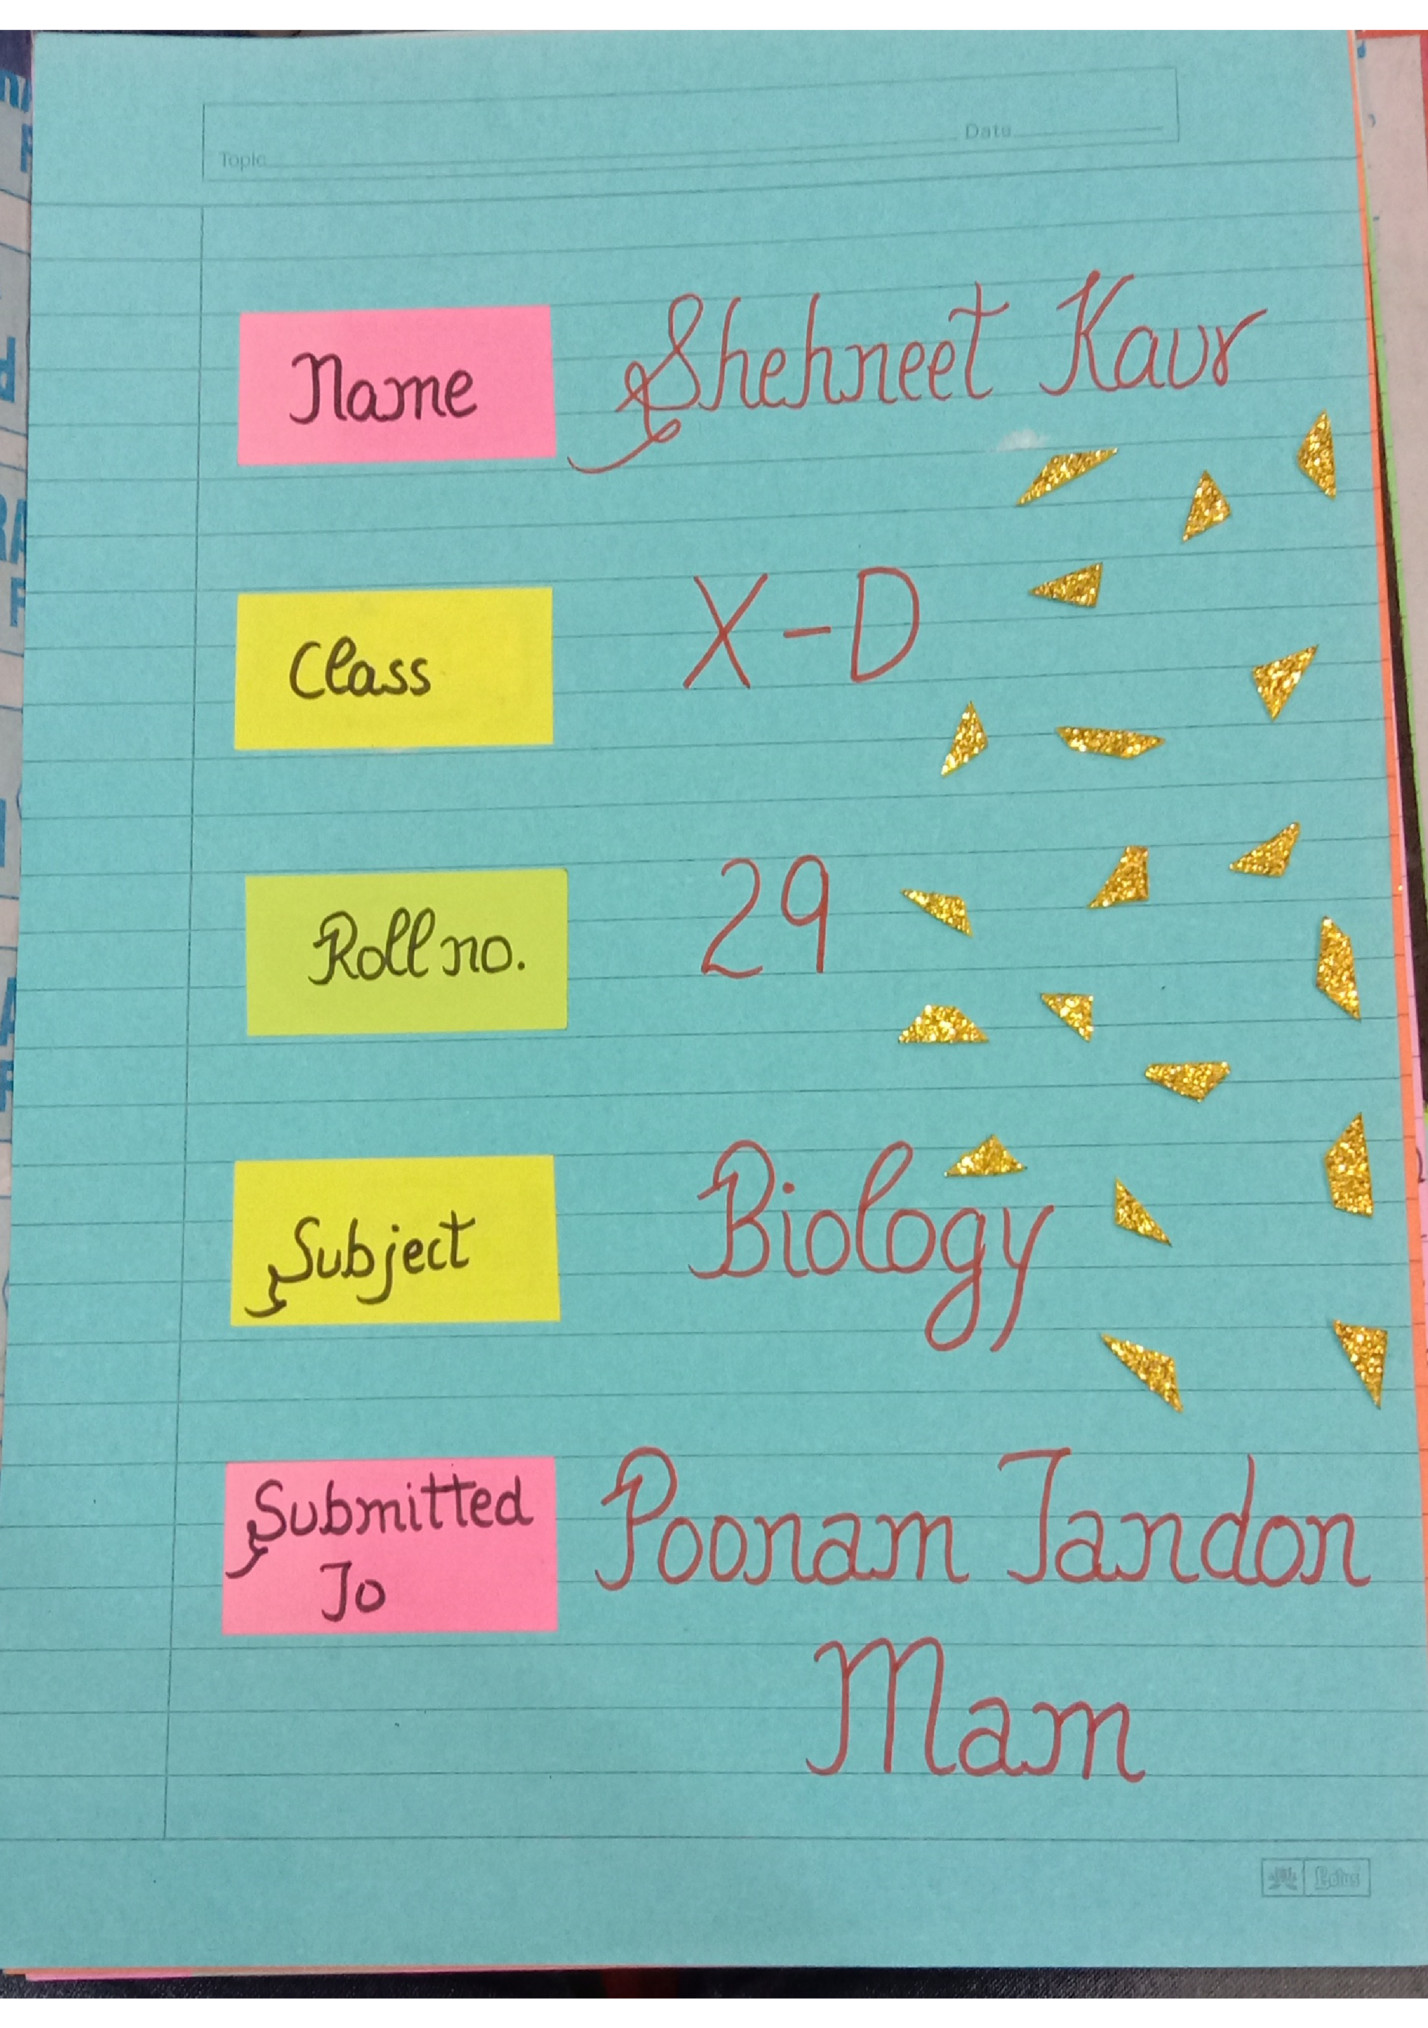 Date
Topic
Name Shehneet Kaur
Class X-D
Roll no. 29
Subject Biology
Submitted To Poonam Tandon
Mam
Lotus